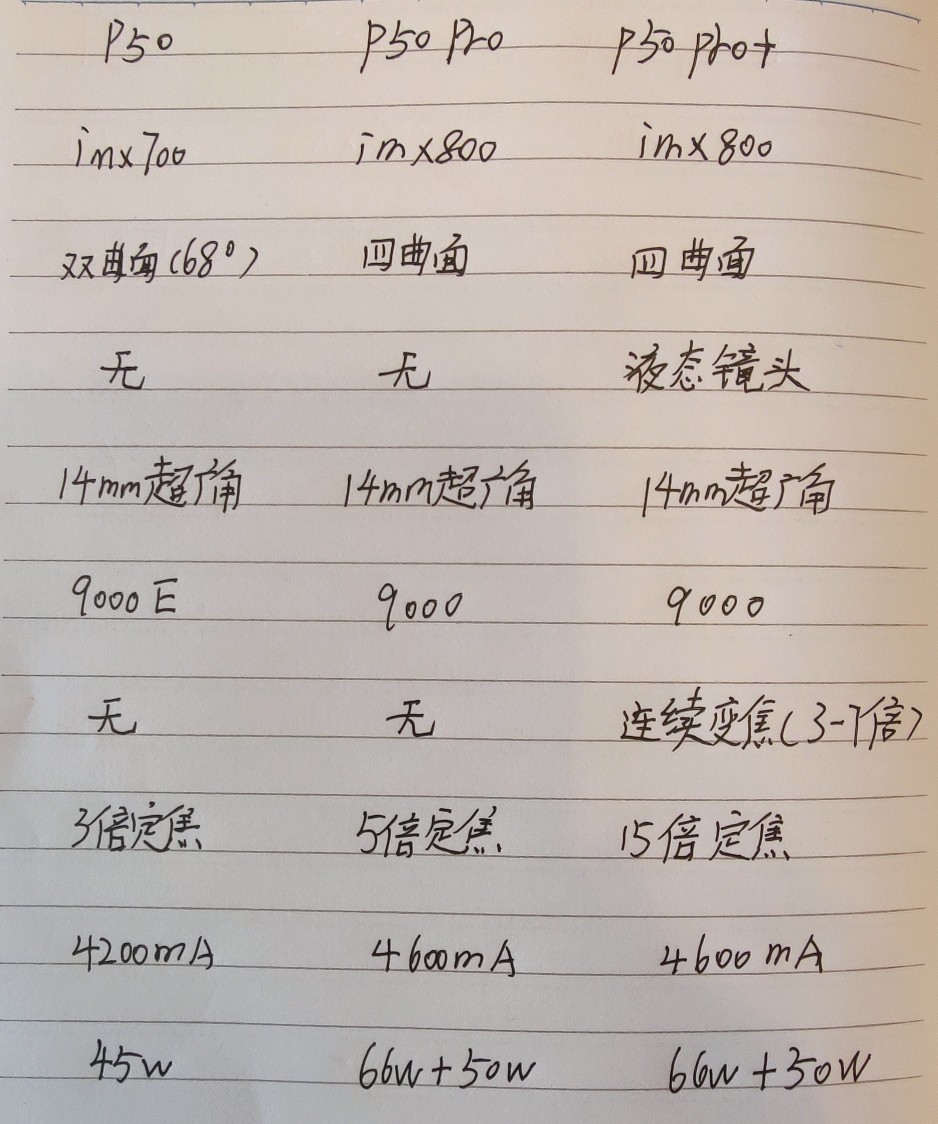 P50 P50 Pro P50 Pro+
imx700 imx800 imx800
双曲面(68°) 四曲面 四曲面
无 无 液态镜头
14mm超广角 14mm超广角 14mm超广角
9000E 9000 9000
无 无 连续变焦(3-7倍)
3倍定焦 5倍定焦 15倍定焦
4200mA 4600mA 4600mA
45w 66w+50w 66w+50w